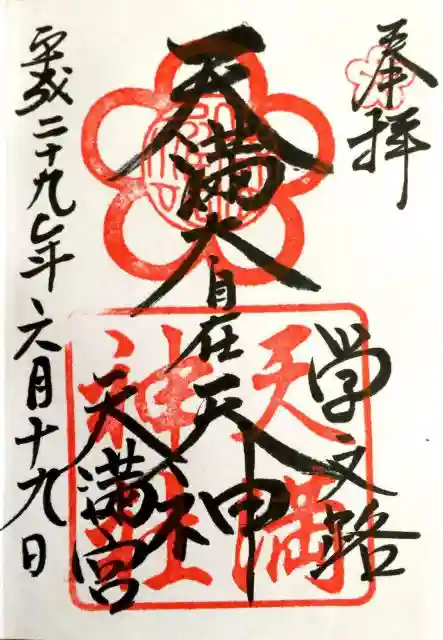 奉拝
学文路
天満大自在天神
天満宮
平成二十九年六月十九日
天満
神社